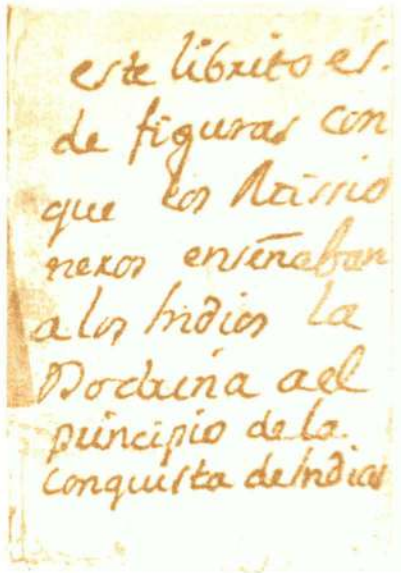 este librito es.
de figuras con
que los Missio
neros enseñaban
a los Indios la
Doctrina a el
principio de la
conquista de Indias